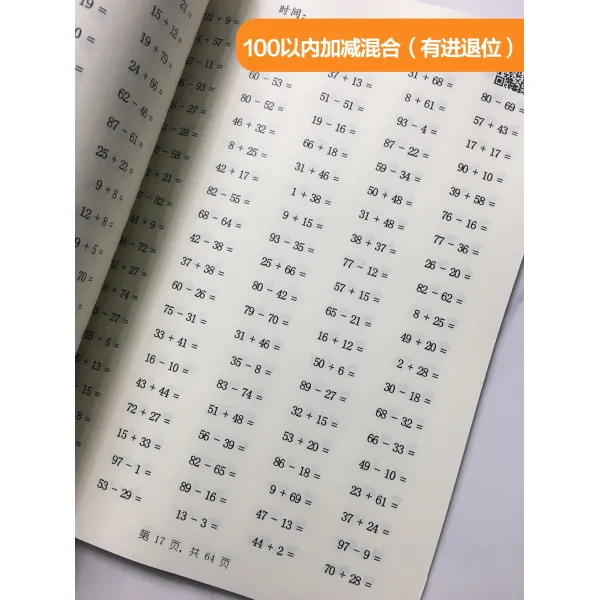 100以内加减混合（有进退位）
时间：
15 + 12 =
19 + 79 =
24 + 66 =
62 - 46 =
87 - 61 =
25 + 23 =
9 + 8 =
12 + 8 =
9 + 5 =
60 - 53 =
80 - 52 =
46 + 32 =
8 + 25 =
42 + 17 =
82 - 55 =
68 - 64 =
42 - 38 =
37 + 38 =
60 - 26 =
75 - 31 =
33 + 41 =
16 - 10 =
43 + 44 =
72 + 27 =
15 + 33 =
97 - 1 =
53 - 29 =
37 + 13 =
51 - 51 =
19 - 16 =
66 + 18 =
31 + 46 =
1 + 38 =
9 + 15 =
93 - 35 =
25 + 66 =
80 - 42 =
79 - 70 =
31 + 46 =
35 - 8 =
83 - 74 =
51 + 48 =
56 - 39 =
82 - 65 =
89 - 16 =
13 - 3 =
31 + 68 =
8 + 61 =
93 - 4 =
87 - 22 =
59 - 34 =
50 + 48 =
31 + 48 =
38 + 37 =
77 - 12 =
57 + 15 =
65 - 21 =
16 + 12 =
50 + 6 =
89 - 27 =
32 + 15 =
53 + 20 =
86 - 18 =
9 + 69 =
47 - 13 =
44 + 2 =
80 - 69 =
57 + 43 =
17 + 17 =
90 + 10 =
39 + 58 =
76 - 16 =
77 - 36 =
26 - 20 =
82 - 62 =
8 + 25 =
49 + 20 =
2 + 28 =
30 - 18 =
68 - 32 =
66 - 33 =
49 - 10 =
23 + 61 =
37 + 24 =
97 - 9 =
70 + 28 =
第 17 页，共 64 页